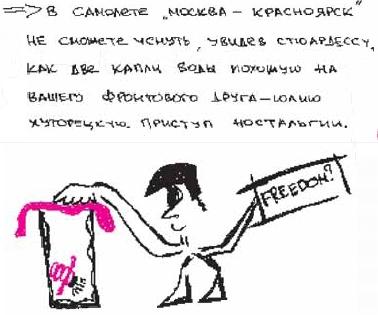 ⇒ В САМОЛЕТЕ „МОСКВА – КРАСНОЯРСК”
НЕ СМОЖЕТЕ УСНУТЬ, УВИДЕВ СТЮАРДЕССУ,
КАК ДВЕ КАПЛИ ВОДЫ ПОХОЖУЮ НА
ВАШЕГО ФРОНТОВОГО ДРУГА – ЮЛИЮ
ХУТОРЕЦКУЮ. ПРИСТУП НОСТАЛЬГИИ.
FREEDOM?